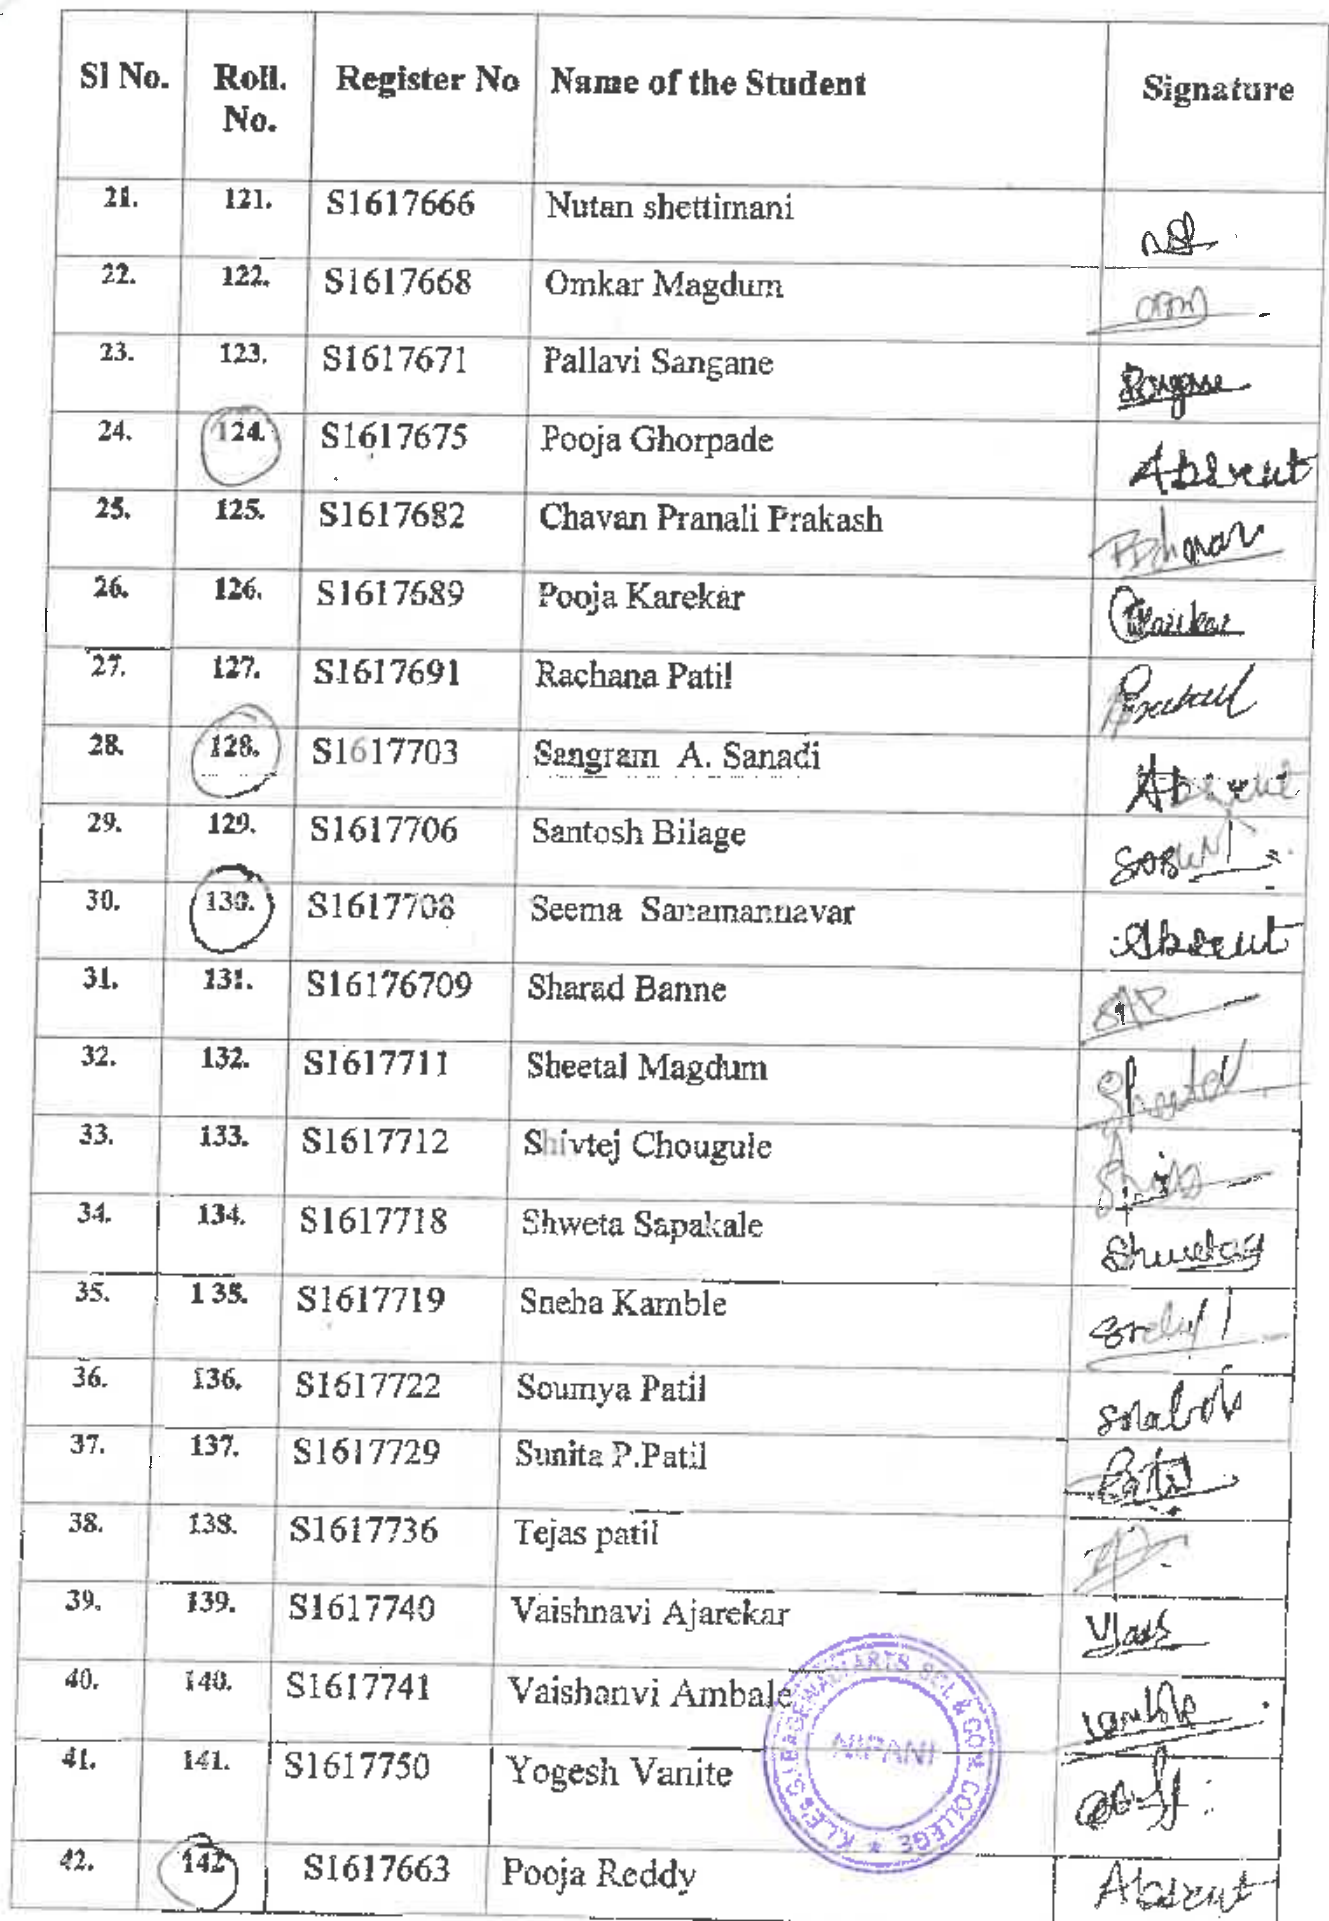 Sl No. Roll. No. Register No Name of the Student Signature
21. 121. S1617666 Nutan shettimani
22. 122. S1617668 Omkar Magdum
23. 123. S1617671 Pallavi Sangane
24. 124. S1617675 Pooja Ghorpade Absent
25. 125. S1617682 Chavan Pranali Prakash
26. 126. S1617689 Pooja Karekar
27. 127. S1617691 Rachana Patil
28. 128. S1617703 Sangram A. Sanadi Absent
29. 129. S1617706 Santosh Bilage
30. 130. S1617708 Seema Sanamannavar Absent
31. 131. S16176709 Sharad Banne
32. 132. S1617711 Sheetal Magdum
33. 133. S1617712 Shivtej Chougule
34. 134. S1617718 Shweta Sapakale
35. 135. S1617719 Sneha Kamble
36. 136. S1617722 Soumya Patil
37. 137. S1617729 Sunita P.Patil
38. 138. S1617736 Tejas patil
39. 139. S1617740 Vaishnavi Ajarekar
40. 140. S1617741 Vaishanvi Ambale
41. 141. S1617750 Yogesh Vanite
NIPANI
42. 142 S1617663 Pooja Reddy Absent